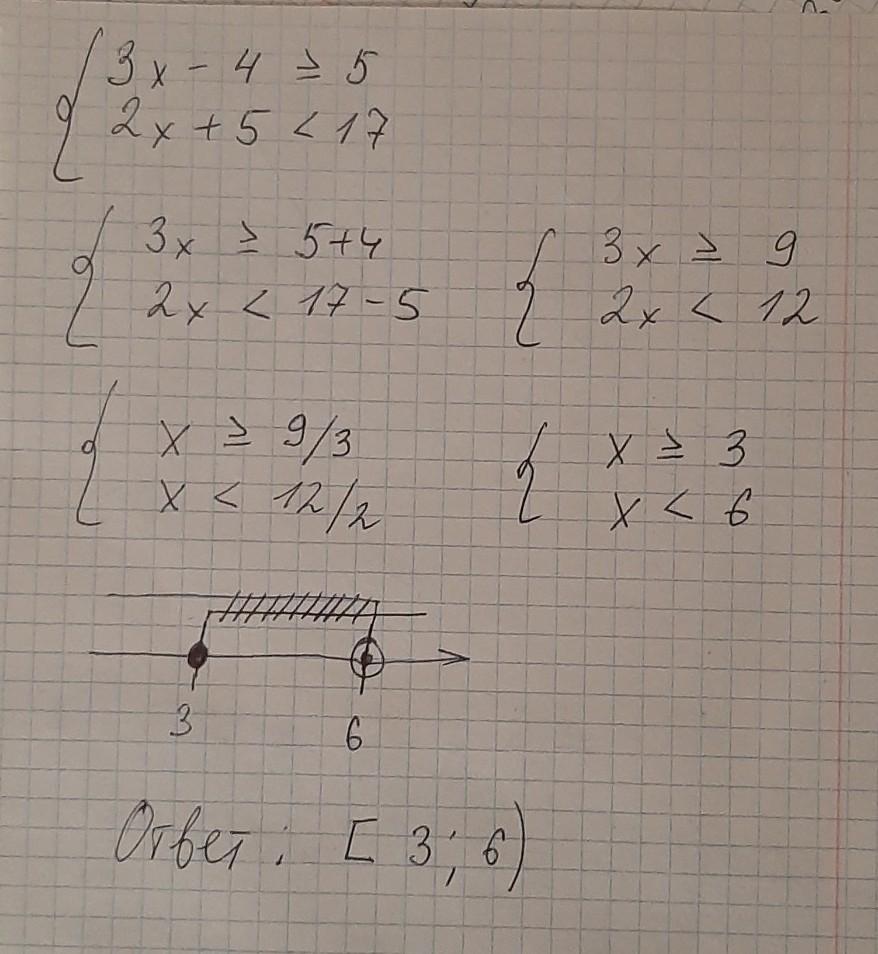 3x - 4 ≥ 5
2x + 5 < 17
3x ≥ 5+4
2x < 17 - 5
3x ≥ 9
2x < 12
x ≥ 9/3
x < 12/2
x ≥ 3
x < 6
3 6
Ответ: [3; 6)